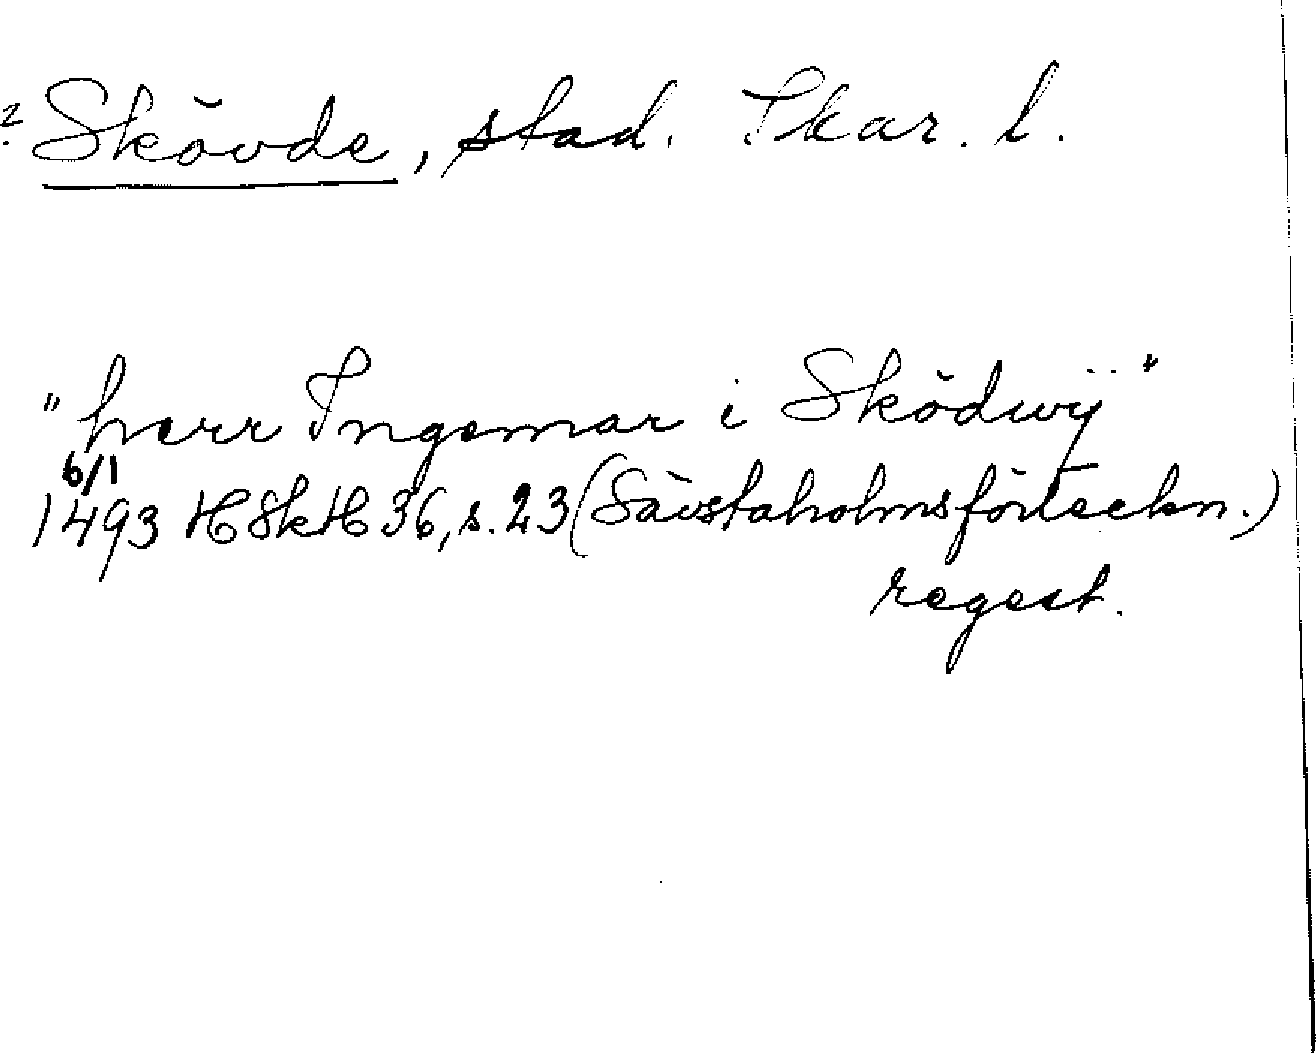 ? Skövde, stad. Skar. l.
"herr Ingemar i Sködwÿ"
6/1
1493 HSkH 36, s. 23 (Sävstaholmsförteckn.)
regest.